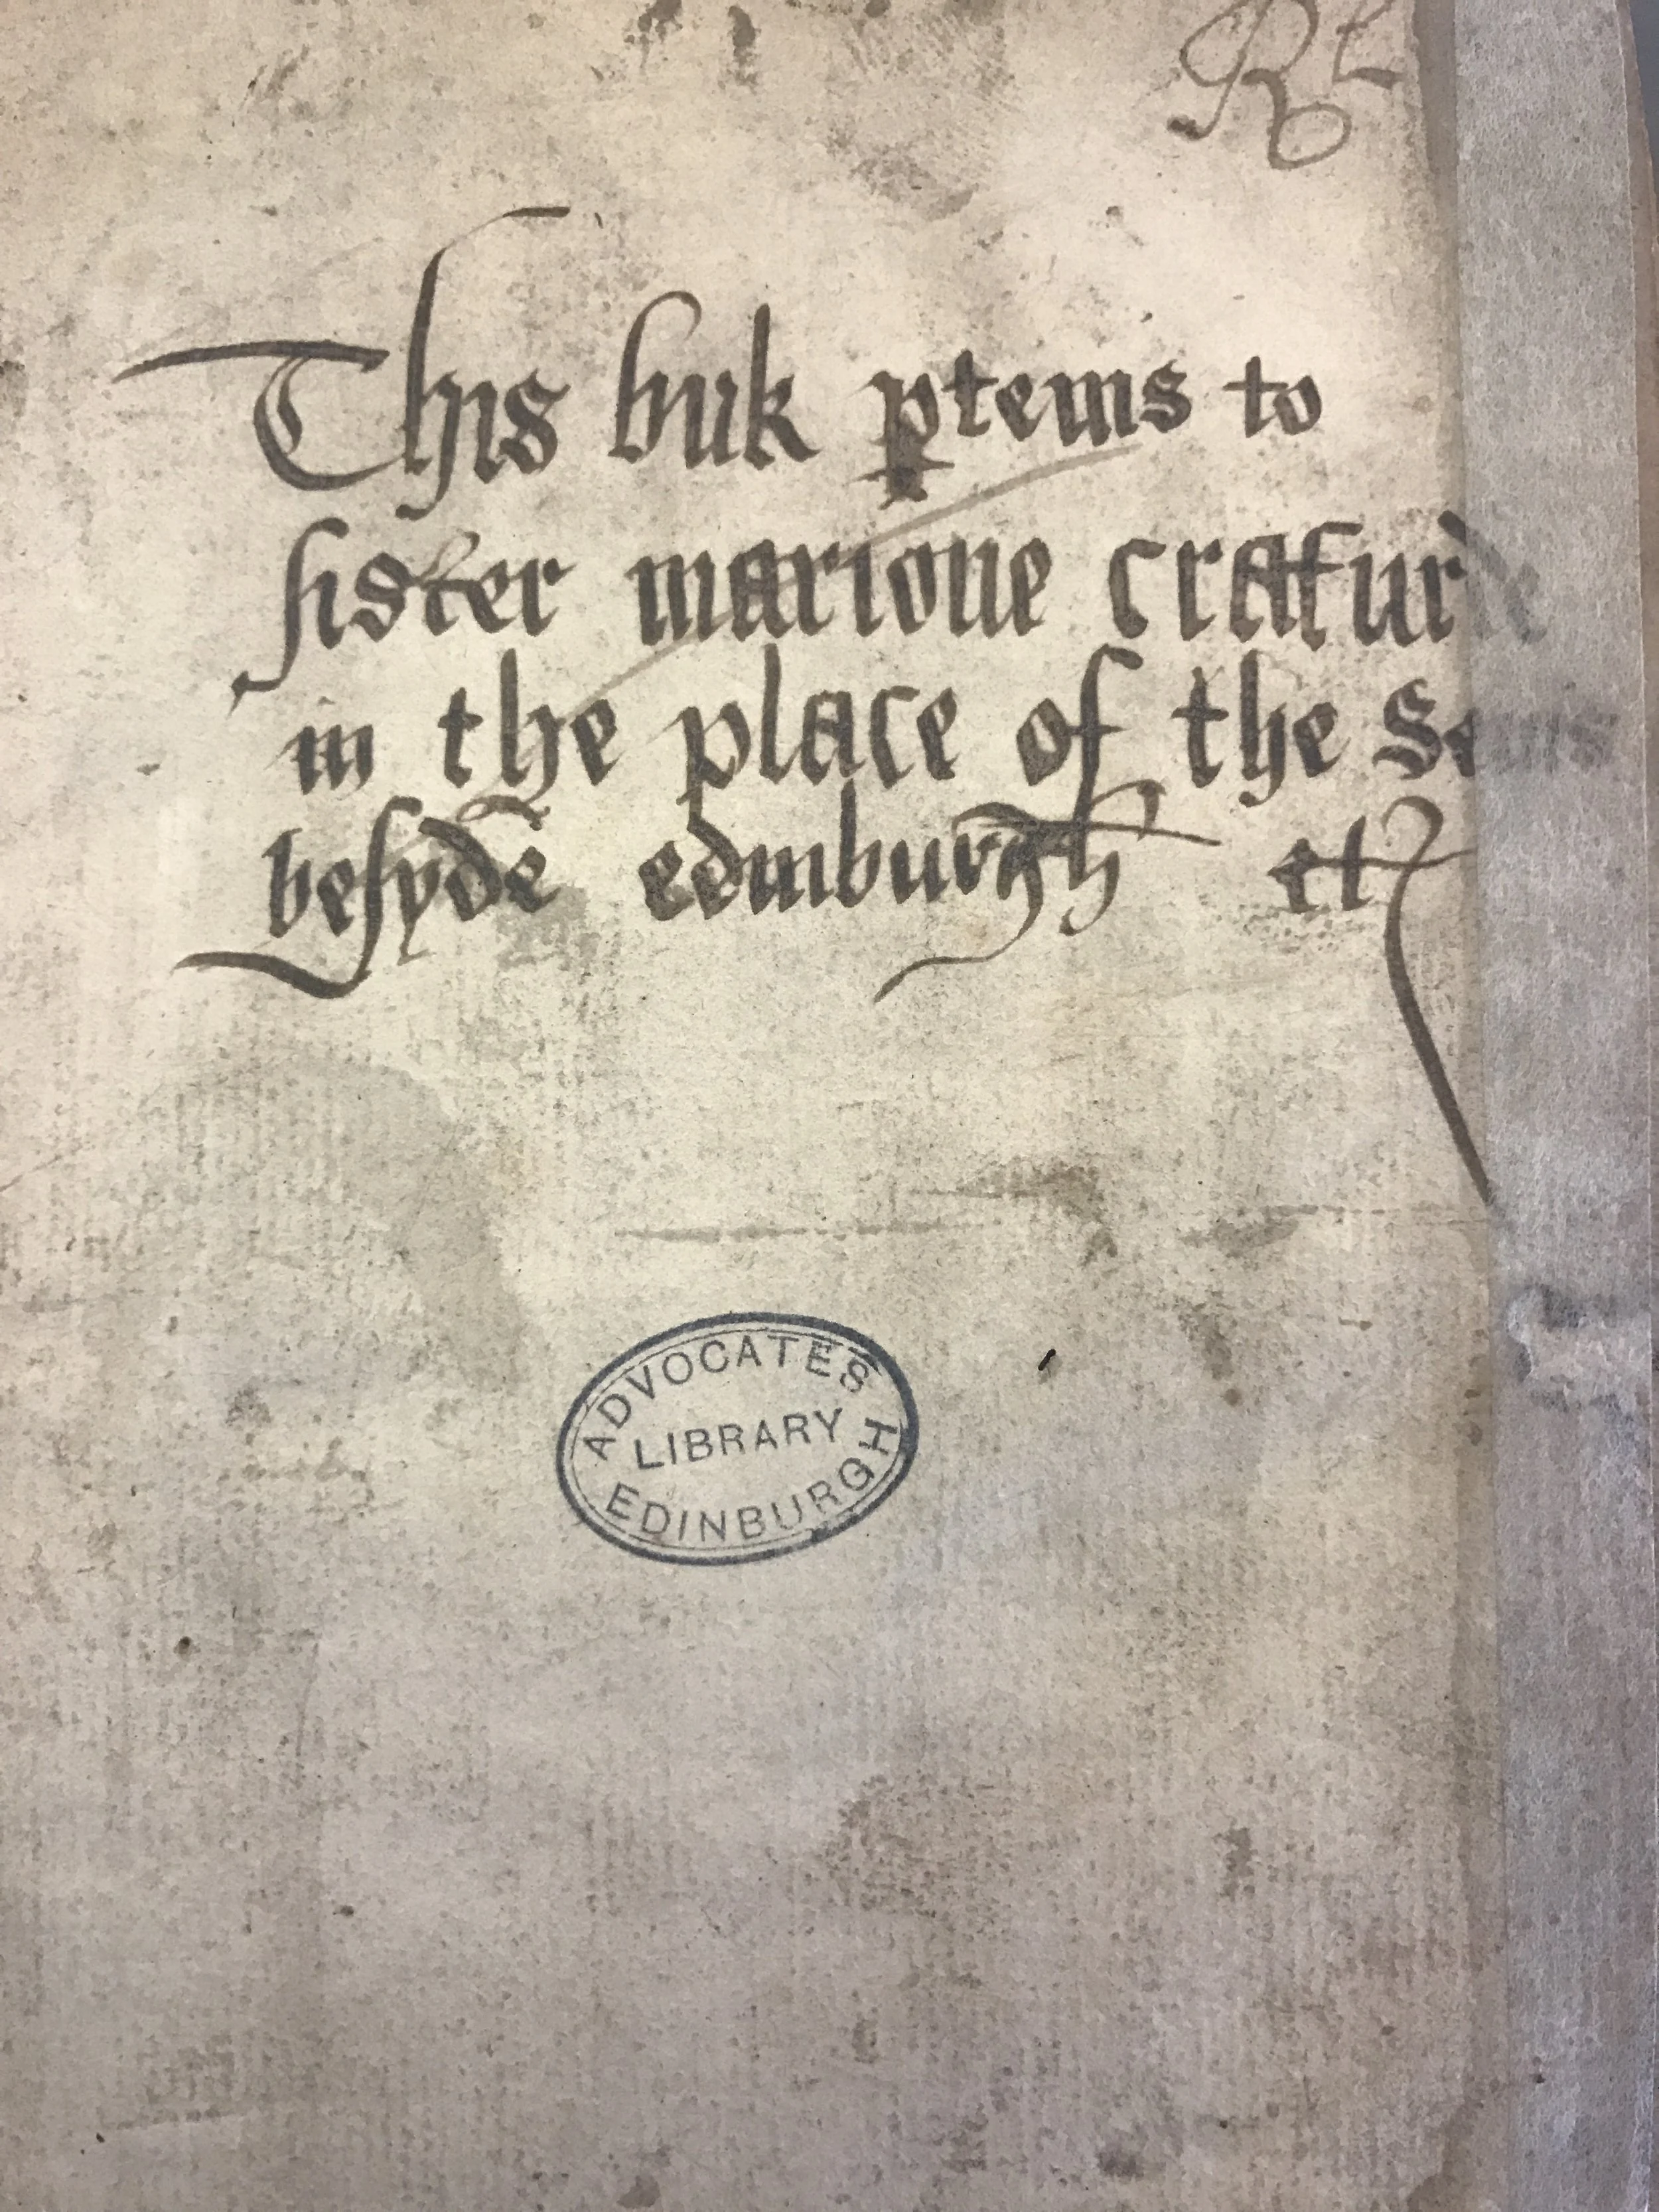 This buk ꝑteins to
sister marioue crafurd
in the place of the Senis
besyde edinburgh etc
ADVOCATES
LIBRARY
EDINBURGH